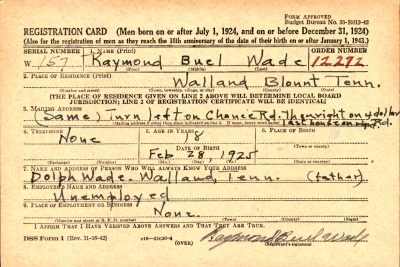 FORM APPROVED
Budget Bureau No. 33-R012-42
REGISTRATION CARD (Men born on or after July 1, 1924, and on or before December 31, 1924)
(Also for the registration of men as they reach the 18th anniversary of the date of their birth on or after January 1, 1943.)
SERIAL NUMBER 1. NAME (Print) ORDER NUMBER
W 157 Raymond Buel Wade 12292
(First) (Middle) (Last)
2. PLACE OF RESIDENCE (Print)
Walland Blount Tenn.
(Number and street) (Town, township, village, or city) (County) (State)
[THE PLACE OF RESIDENCE GIVEN ON LINE 2 ABOVE WILL DETERMINE LOCAL BOARD
JURISDICTION; LINE 2 OF REGISTRATION CERTIFICATE WILL BE IDENTICAL]
3. MAILING ADDRESS
(Same) Turn left on Rd. Then right on
last house on Rd.
4. TELEPHONE 5. AGE IN YEARS
None 18
DATE OF BIRTH
Feb 28, 1925
7. NAME AND ADDRESS OF PERSON WHO WILL ALWAYS KNOW YOUR ADDRESS
Dolph Wade. Walland, Tenn. (father)
8. EMPLOYER'S NAME AND ADDRESS
Unemployed
9. PLACE OF EMPLOYMENT OR BUSINESS
None.
(Number and street or R. F. D. number) (Town) (County) (State)
I AFFIRM THAT I HAVE VERIFIED ABOVE ANSWERS AND THAT THEY ARE TRUE.
DSS Form 1 (Rev. 11-16-42) (OVER) Raymond Buel Wade
(Registrant's signature)